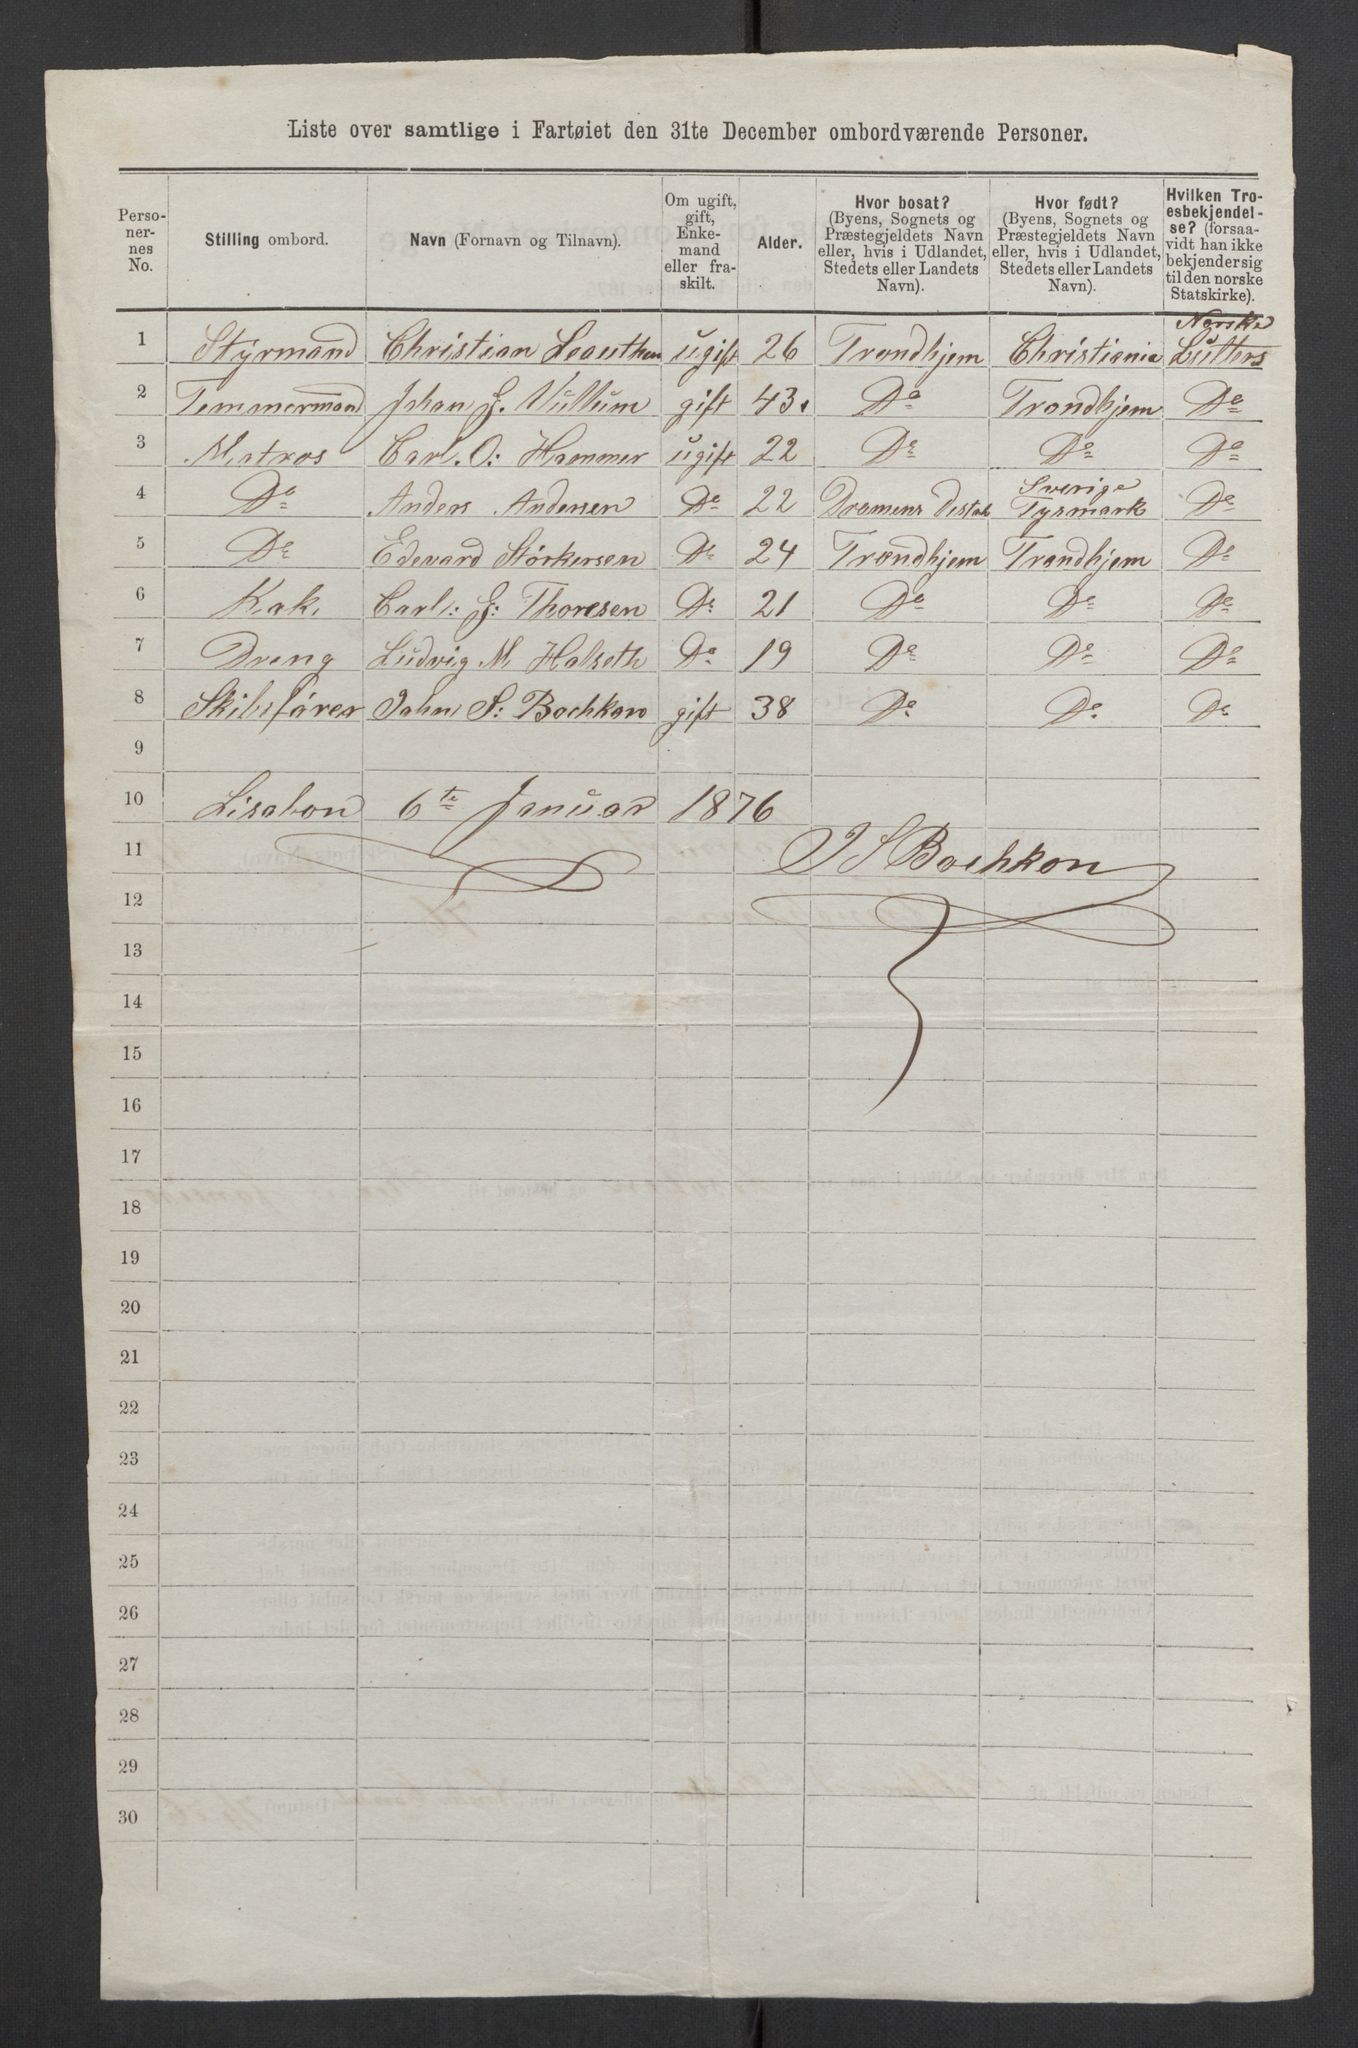 Liste over samtlige i Fartøiet den 31te December ombordværende Personer.
Perso-
ner-
nes
No.
Stilling ombord.
Navn (Fornavn og Tilnavn).
Om ugift,
gift,
Enke-
mand
eller fra-
skilt.
Alder.
Hvor bosat?
(Byens, Sognets og
Præstegjeldets Navn
eller, hvis i Udlandet,
Stedets eller Landets
Navn).
Hvor født?
(Byens, Sognets og
Præstegjeldets Navn
eller, hvis i Udlandet,
Stedets eller Landets
Navn).
Hvilken Tro-
esbekjendel-
se? (forsaa-
vidt han ikke
bekjender sig
til den norske
Statskirke).
Norske
1 Styrmand Christian ugift 26 Trondhjem Christiania Lutters
2 Temmermand Johan J. Vullum gift 43. Do Trondhjem Do
3 Matros Carl. O: Hammer ugift 22 Do Do Do
Sverige
4 Do Anders Andersen Do 22 Dramens Tysmark Do
5 Do Edevard Størkersen Do 24 Trondhjem Trondhjem Do
6 Kok. Carl: J: Thoresen Do 21 Do Do Do
7 Dreng Ludvig M Halseth Do 19 Do Do Do
8 Skibsfører John S: Bochkon gift 38 Do Do Do
9
10 Lisabon 6te Januar 1876
11 J S Bochkon
12
13
14
15
16
17
18
19
20
21
22
23
24
25
26
27
28
29
30